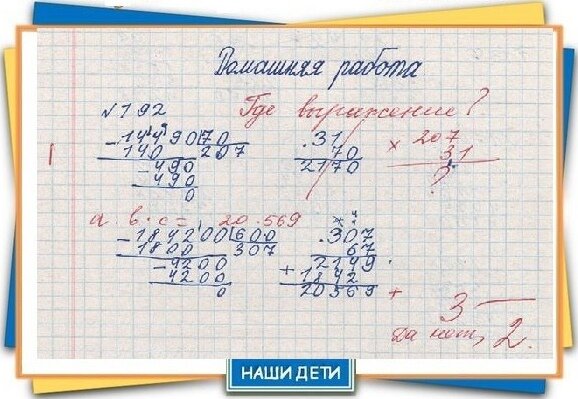 Домашняя работа
N 192 Где выражение?
- 14490|70 .31 × 207
140 207 70 31
- 490 2170 ?
490
0
а в.с = 20.569 ×
- 184200|600 .307
1800 307 67
- 4200 + 2149.
4200 1842
0 20569 +
3 —
да нет, 2.
НАШИ ДЕТИ